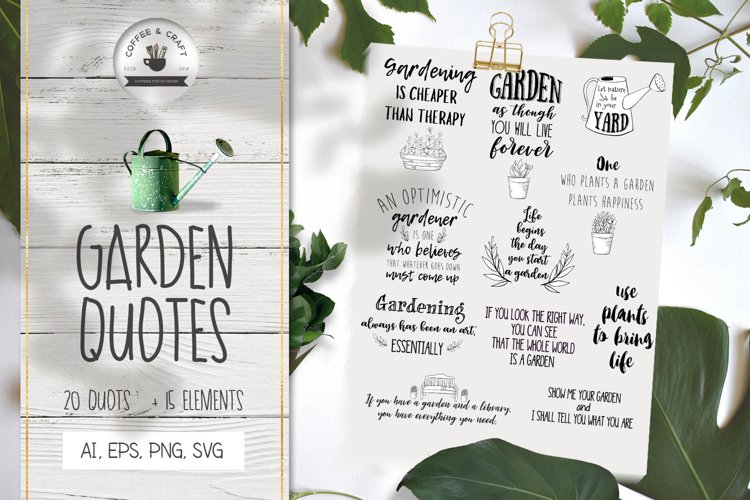 COFFEE & CRAFT
CAFFEINE FUELED DESIGN
GARDEN
QUOTES
20 QUOTS + 15 ELEMENTS
AI, EPS, PNG, SVG
Gardening
IS CHEAPER
THAN THERAPY
GARDEN
as though
YOU WILL LIVE
forever
Let nature
be
in your
YARD
One
WHO PLANTS A GARDEN
PLANTS HAPPINESS
AN OPTIMISTIC
gardener
IS ONE
who believes
THAT WHATEVER GOES DOWN
must come up
Life
begins
the day
you start
a garden
Gardening
always has been an art,
ESSENTIALLY
IF YOU LOOK THE RIGHT WAY,
YOU CAN SEE
THAT THE WHOLE WORLD
IS A GARDEN
use
plants
to bring
life
If you have a garden and a library,
you have everything you need.
SHOW ME YOUR GARDEN
and
I SHALL TELL YOU WHAT YOU ARE